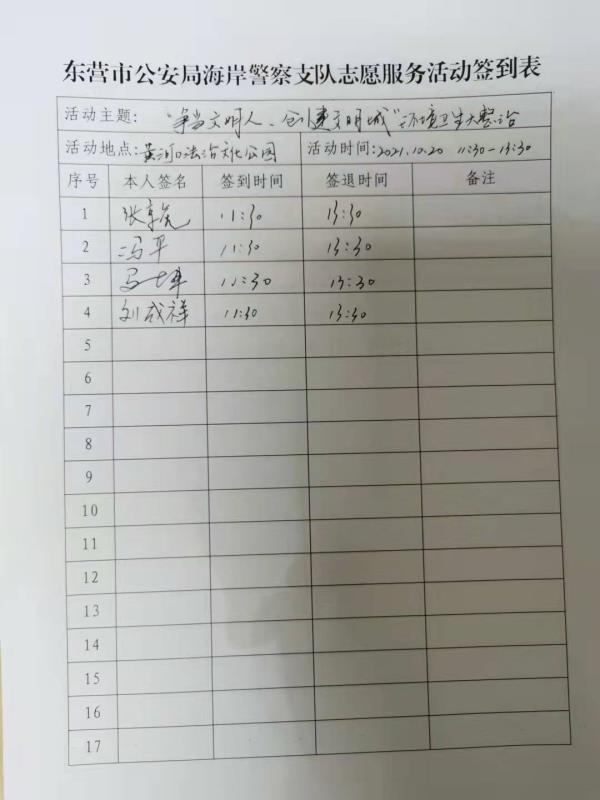 东营市公安局海岸警察支队志愿服务活动签到表
活动主题: "争当文明人、创建文明城"环境卫生大整治
活动地点: 黄河口法治文化公园 活动时间: 2021.10.20 11:30-13:30
序号 本人签名 签到时间 签退时间 备注
1 张 11:30 13:30
2 冯平 11:30 13:30
3 马 11:30 13:30
4 刘成祥 11:30 13:30
5
6
7
8
9
10
11
12
13
14
15
16
17